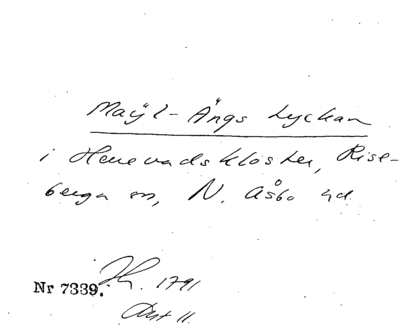 Maÿl-Ängs Lyckan
i Herrevadskloster, Rise-
berga sn, N. Åsbo hd.
Nr 7339. 1791
Akt 11.